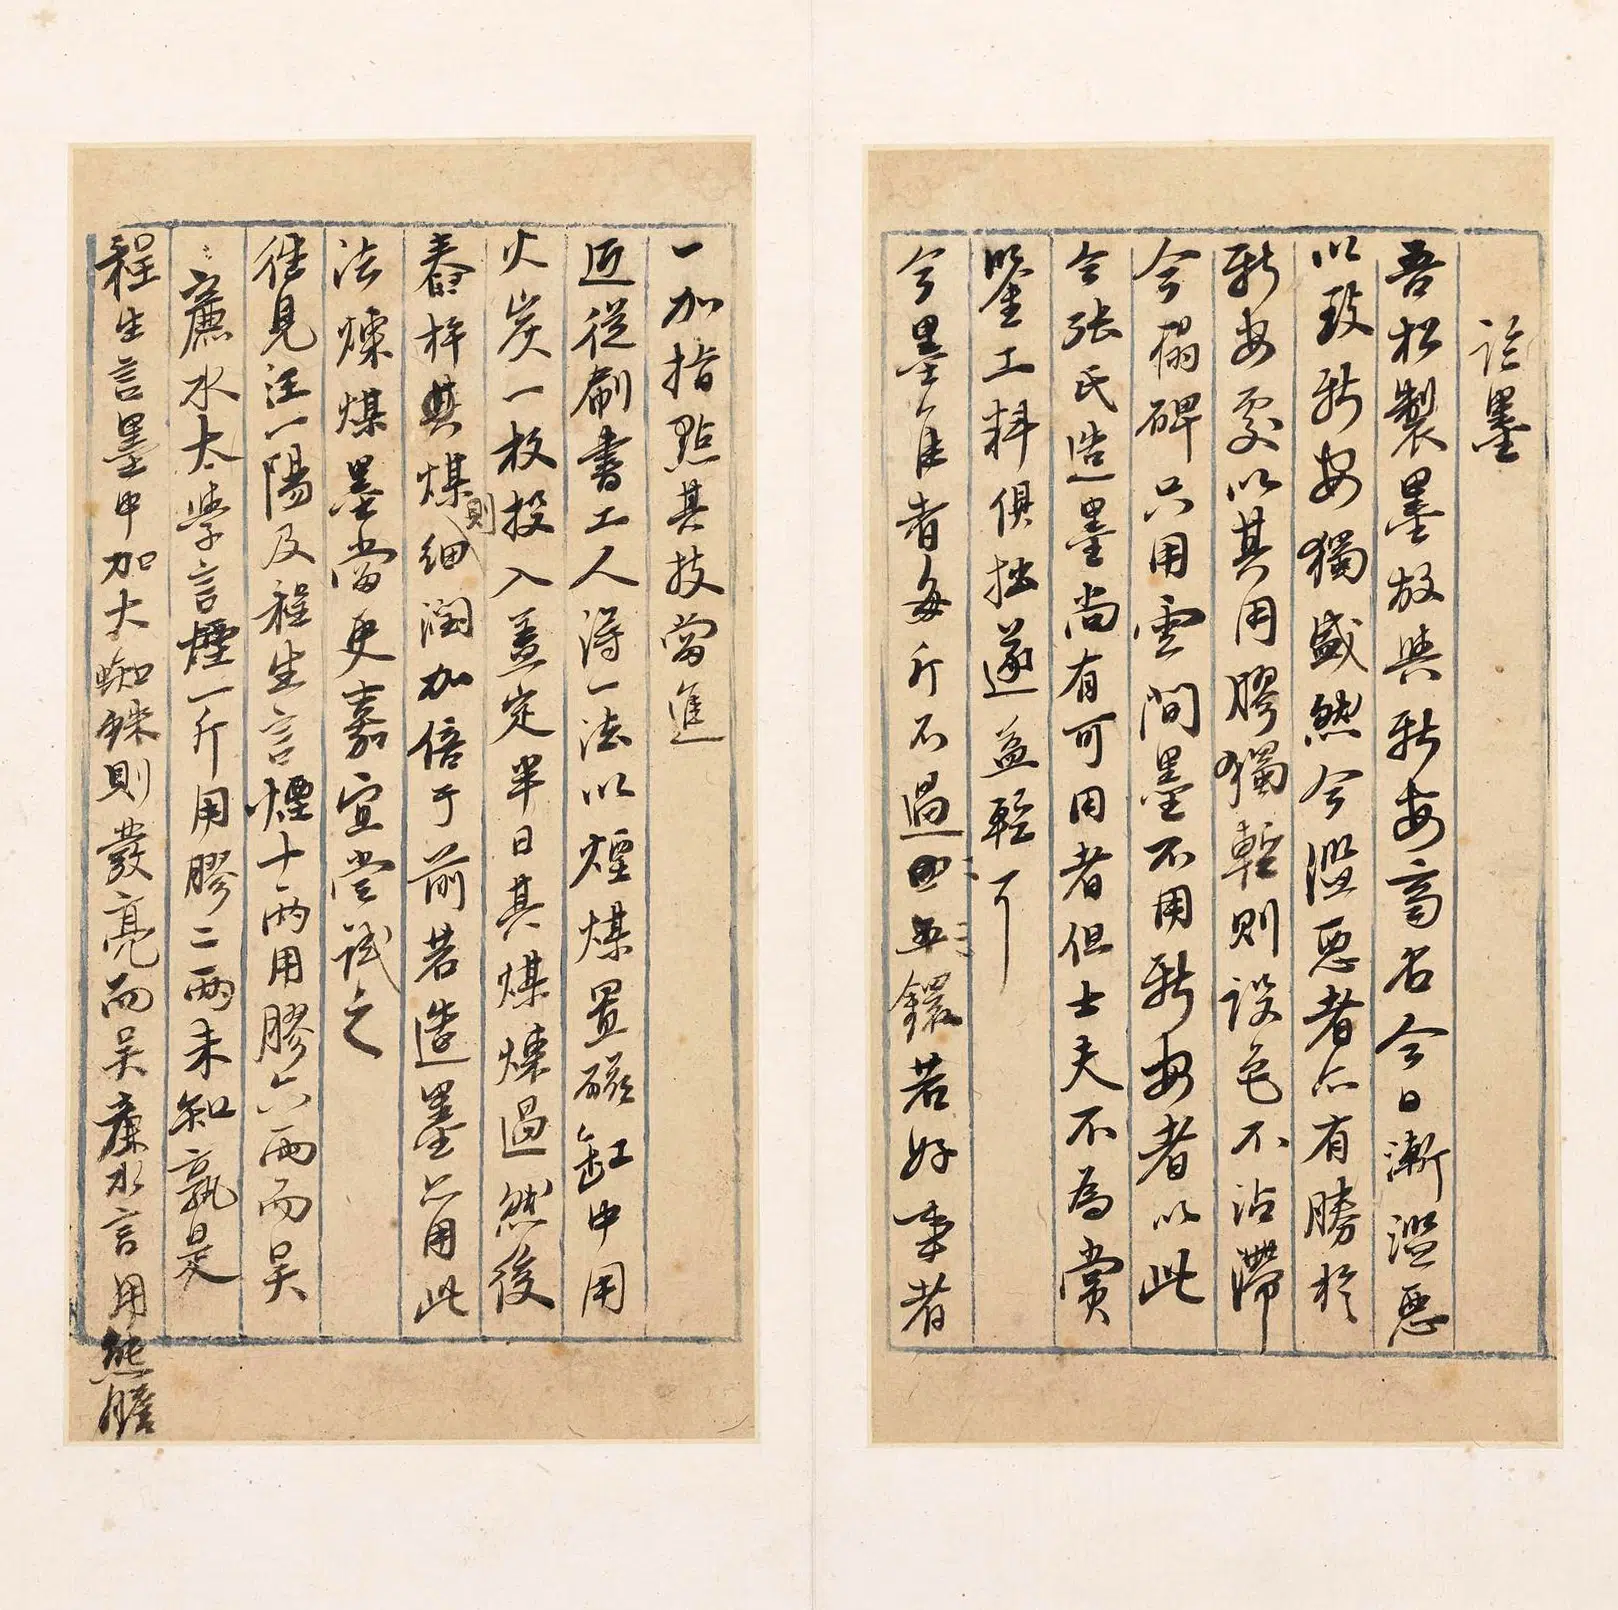 論墨
吾松製墨故與新安齊名今日漸濫惡
以致新安獨盛然今濫惡者亦有勝於
新安處以其用膠獨輕則設色不沾滯
今榻碑只用雲間墨不用新安者以此
今張氏造墨尚有可用者但士夫不為賞
鑒工料俱拙遂益輕下
今墨佳者每斤不過四五鐶若好事者
一加指點其技當進
近從刷書工人得一法以煙煤置磁缸中用
火炭一枚投入蓋定半日其煤煉過然後
舂杵其煤則細潤加倍于前若造墨亦用此
法煉煤墨當更嘉宜嘗試之
往見汪一陽及程生言煙十兩用膠六兩而吳
廉水太學言煙一斤用膠二兩未知孰是
程生言墨中加大蜘蛛則發亮而吳廉水言用熊膽